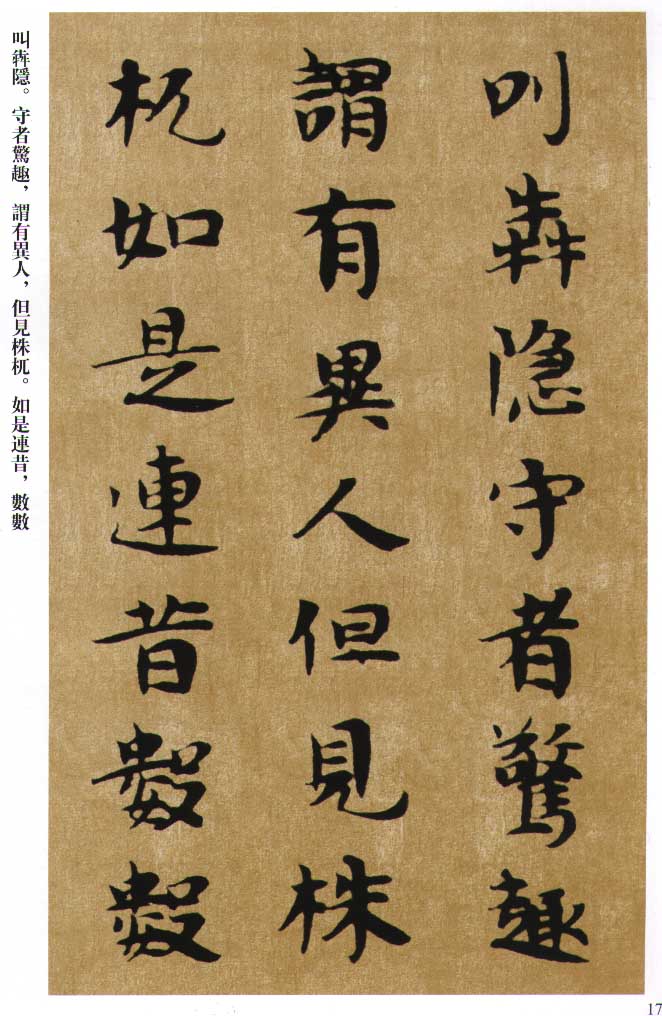 叫犇隱守者驚趣
謂有異人但見株
杌如是連昔數數
叫犇隱。守者驚趣，謂有異人，但見株杌。如是連昔，數數
17